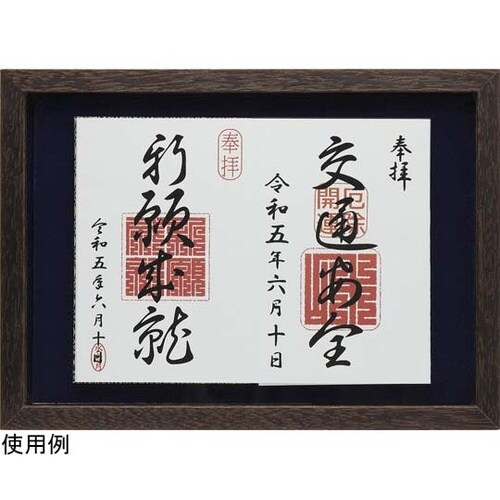 奉拝
交通安全
令和五年六月十日
奉拝
祈願成就
令和五年六月十日
使用例